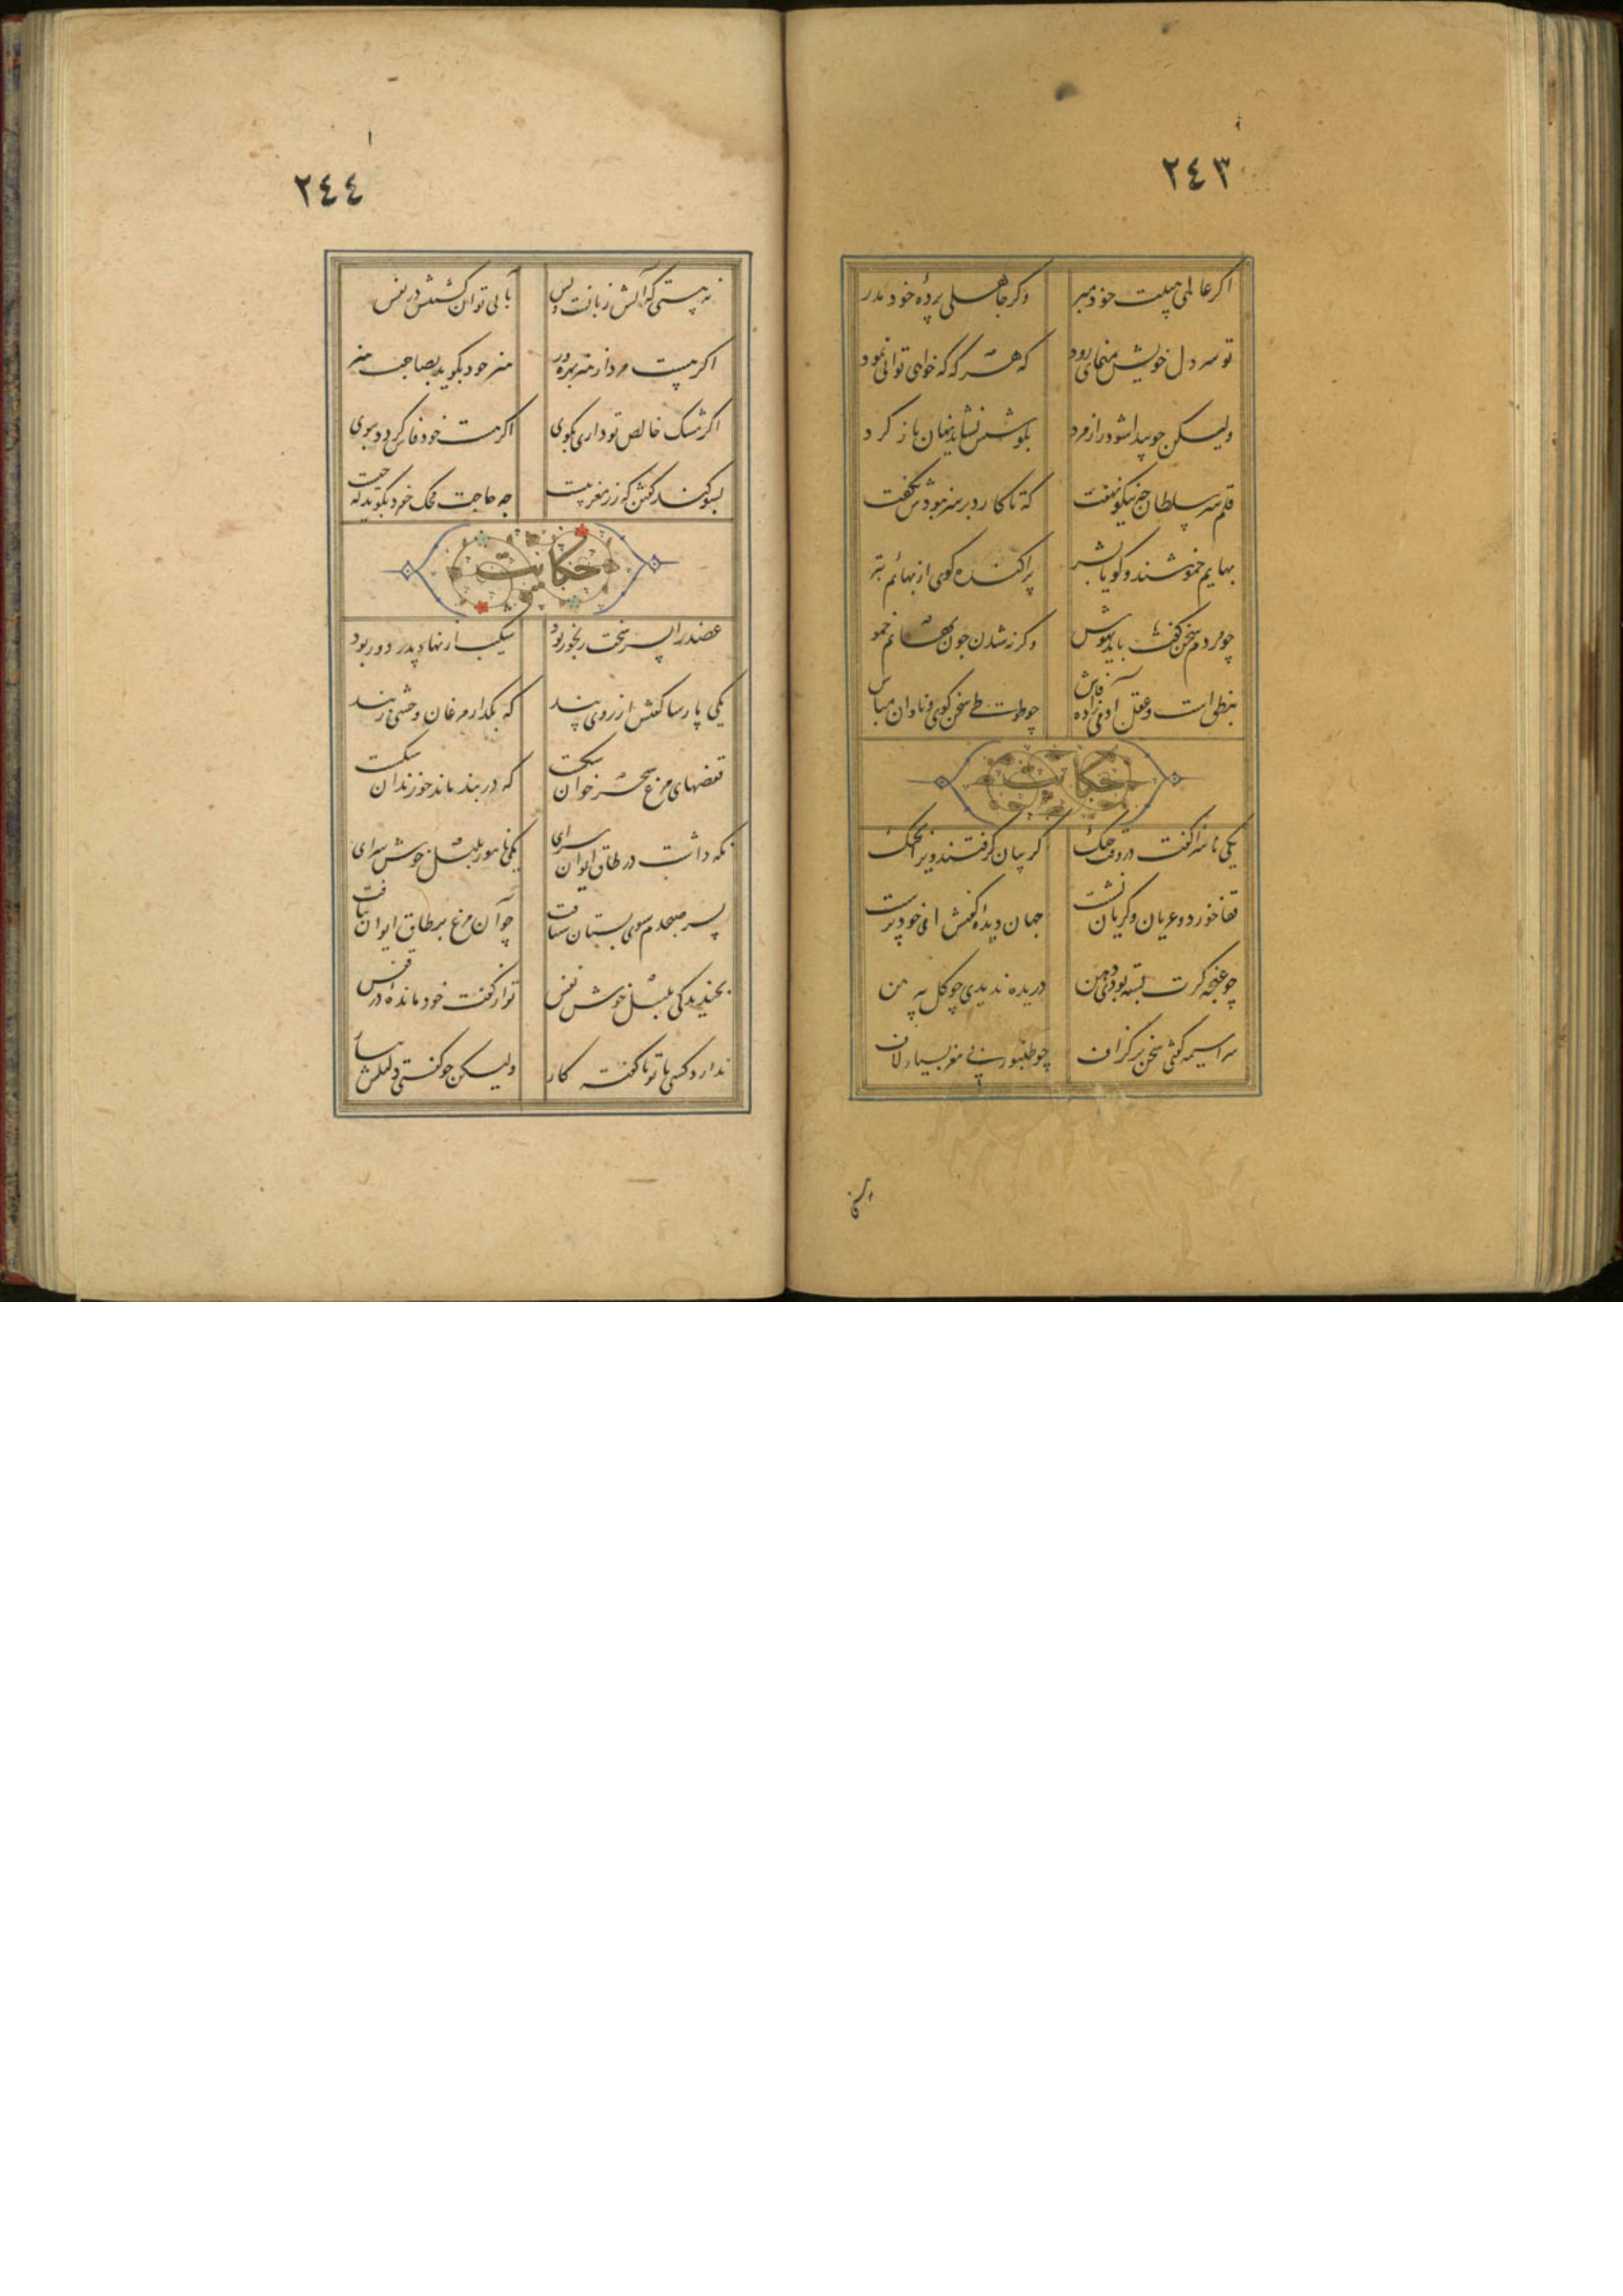 ٢٤٣
اکر عالمی هیبت خود مبر
وکر جاهلی پردهٔ خود مدر
تو سر دل خویش منمای زود
که هر که که خواهی توانی نمود
ولیکن چو پیدا شود راز مرد
بکوشش نشاید نهان باز کرد
قلم سر سلطان چه نیکو نهفت
که تا کارد بر سر نبودش نکفت
بهایم خموشند و کویا بشر
پراکنده کوی از بهائم بتر
چو مردم سخن کفت باید بهوش
وکرنه شدن چون بهائم خموش
بنطق است و عقل آدمی زاده فاش
چو طوطی سخن کوی و نادان مباش
حکایت
یکی ناسزا کفت در وقت جنک
کریبان کرفتند ویرا بچنک
قفا خورد و عریان و کریان نشست
جهان دیدهٔ کفتش ای خودپرست
چو غنچه کرت بسته بودی دهن
دریده ندیدی چو کل پیرهن
سراسیمه کوئی سخن بر کزاف
چو طنبور بی مغز بسیار لاف
٢٤٤
نه بینی که آتش زبانست و بس
بآبی توان کشتنش در نفس
اکر هست مرد از هنر بهره ور
هنر خود بکوید بصاحب هنر
اکر مشک خالص تو داری مکوی
اکر هست خود فاش کردد ببوی
بسوکند کفتن که زر مغربیست
چه حاجت محک خود بکوید که چیست
حکایت
عضد را پسر سخت رنجور بود
شکیب از نهاد پدر دور بود
یکی پارسا کفتش از روی پند
که بکذار مرغان وحشی ز بند
قفصهای مرغ سحر خوان شکست
که در بند ماند چو زندان شکست
نکه داشت در طاق ایوان سرای
یکی نامور بلبل خوش سرای
پسر صبحدم سوی بستان شتافت
جز آن مرغ بر طاق ایوان نیافت
بخندید کی بلبل خوش نفس
تو از کفت خود ماندهٔ در قفس
ندارد کسی با تو ناکفته کار
ولیکن چو کفتی دلیلش بیار